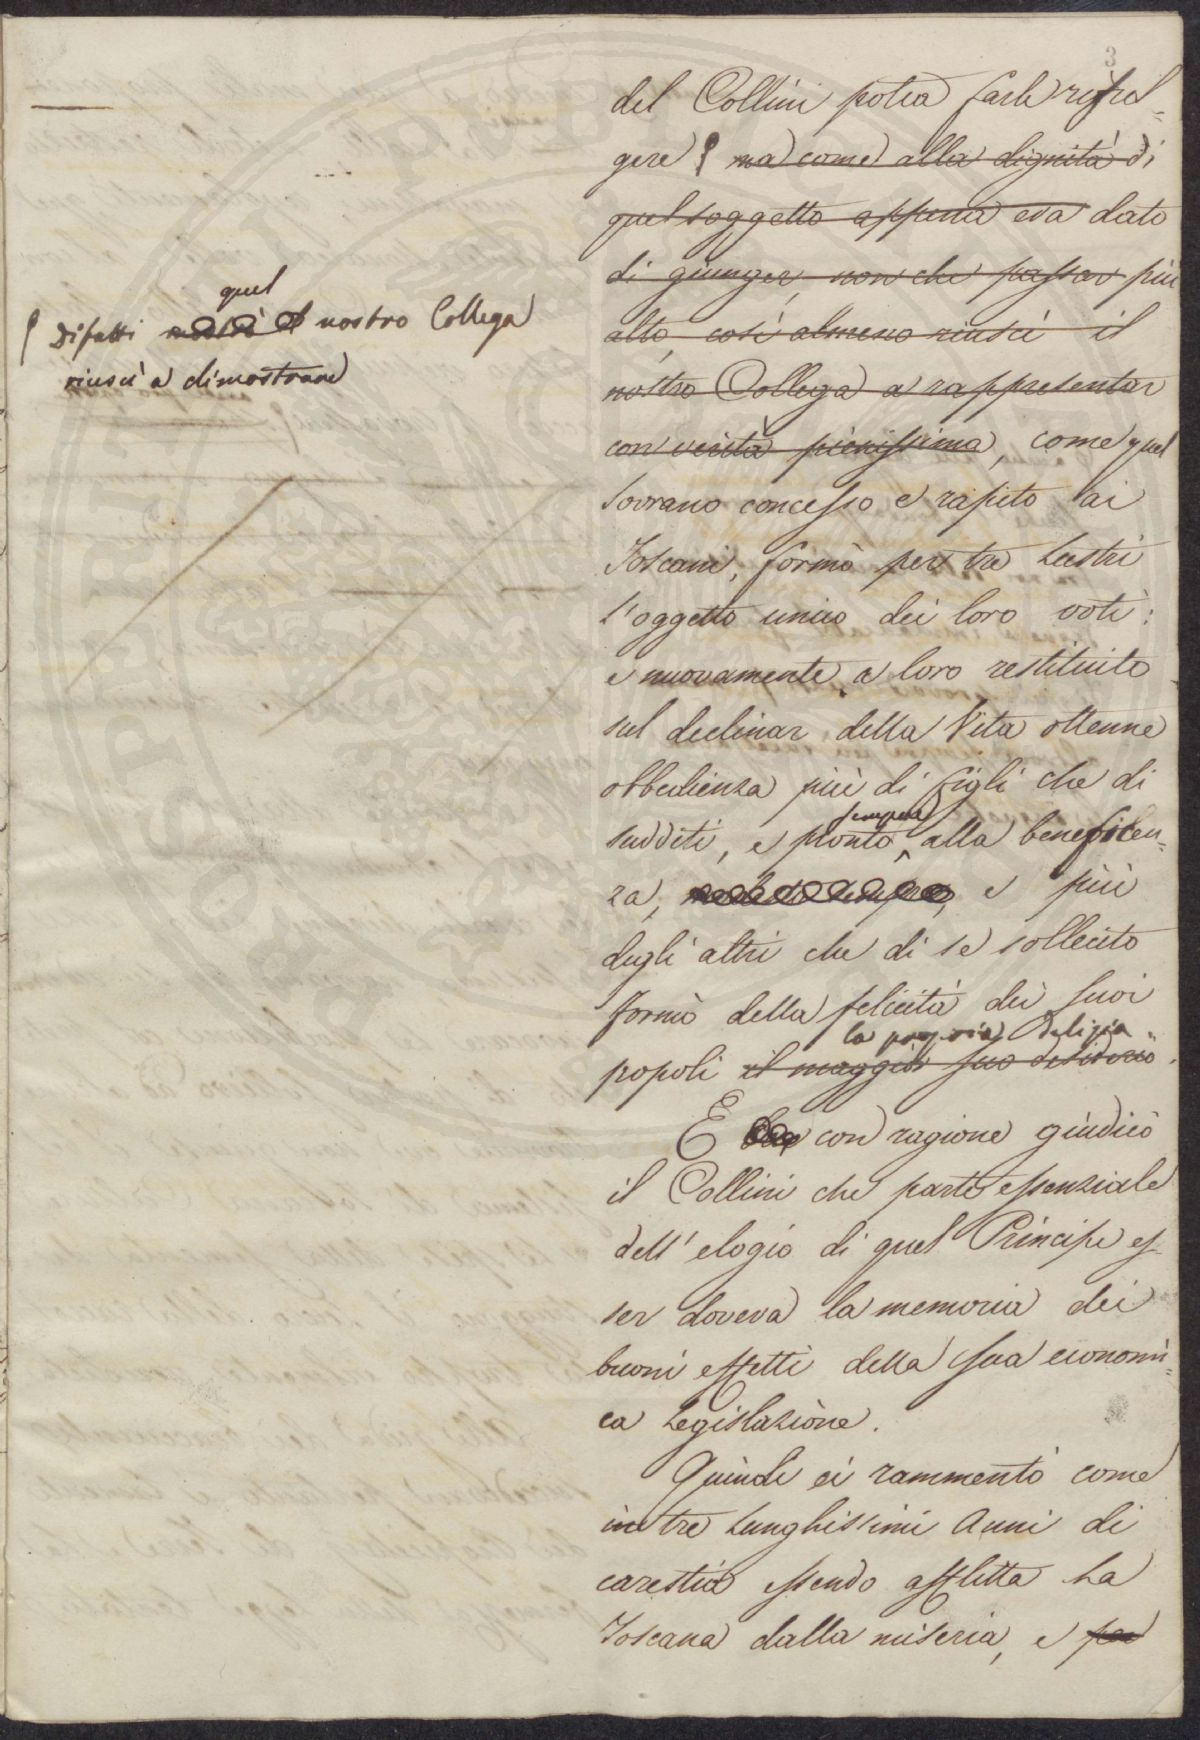 3
del Collini potea farle rifiol-
gere ſ ma come alla dignità di
quel soggetto appena era dato
di giunger, non che passar più
alto, così almeno riuscì il
nostro Collega a rappresentar
con verità pienissima, come quel
sovrano concesso e rapito ai
Toscani, formò per tre Lustri
l'oggetto unico dei loro voti:
e nuovamente a loro restituito
sul declinar della Vita ottenne
obbedienza più di figli che di
sempre
sudditi, e pronto alla beneficen-
za, e più
degli altri che di se sollecito
formò della felicità dei suoi
la propria delizia.
popoli il maggior suo desiderio.
E con ragione giudicò
il Collini che parte essenziale
dell'elogio di quel Principe es-
ser doveva la memoria dei
buoni effetti della sua economi-
ca Legislazione.
Quindi ci rammentò come
in tre Lunghissimi Anni di
carestia essendo afflitta La
Toscana dalla miseria, e per
quel
ſ Difatti mostrò il nostro Collega
riuscì a dimostrare